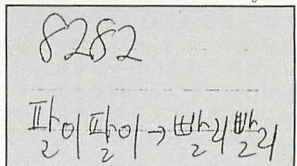 8282
팔이팔이→빨리빨리